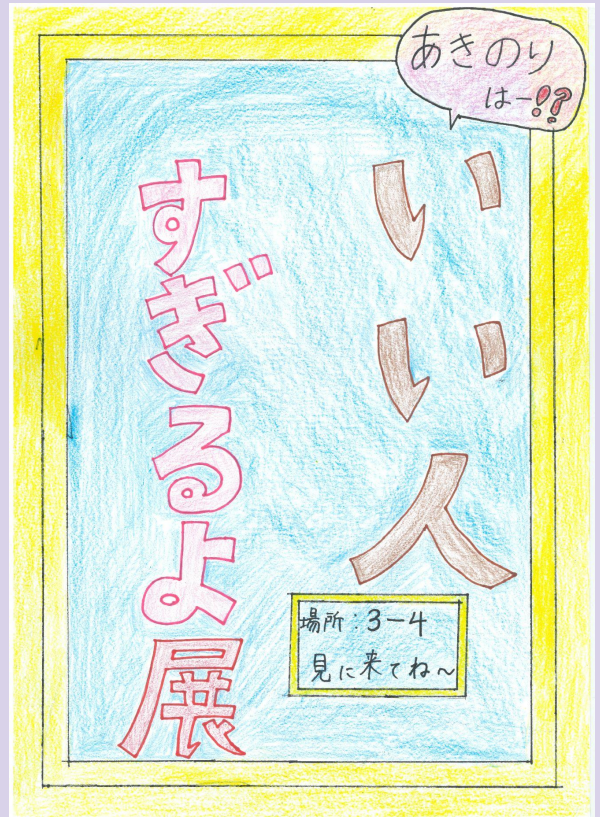 あきのり
はー!!?
いい人
すぎるよ展
場所:3-4
見に来てね~